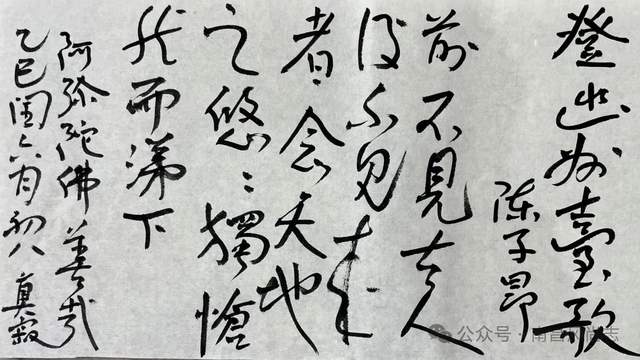 登幽州臺歌
陈子昂
前不見古人
後不見来
者念天地
之悠悠獨愴
然而涕下
阿弥陀佛善哉
乙巳閏六月初八 真寂
公众号·南昌